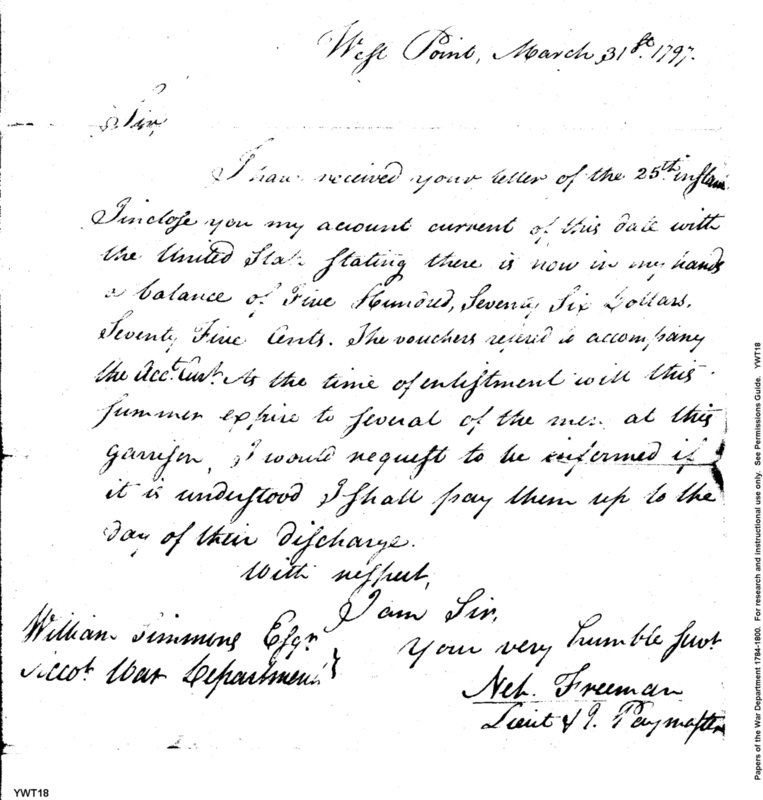 West Point, March 31st. 1797.
Sir,
I have received your letter of the 25th instan
I inclose you my account current of this date with
the United Stat stating there is now in my hands
a balance of Five Hundred, Seventy Six Dollars,
Seventy Five Cents. The vouchers refered to accompany
the Acct. Curt. As the time of enlistment will this
summer expire to several of the men at this
garrison, I would request to be informed if
it is understood I shall pay them up to the
day of their discharge.
With respect,
I am Sir,
Your very humble Servt
William Simmons Esqr
Accot. War Department
Neh. Freeman
Lieut & Paymaster
YWT18
Papers of the War Department 1784-1800. For research and instructional use only. See Permissions Guide. YWT18